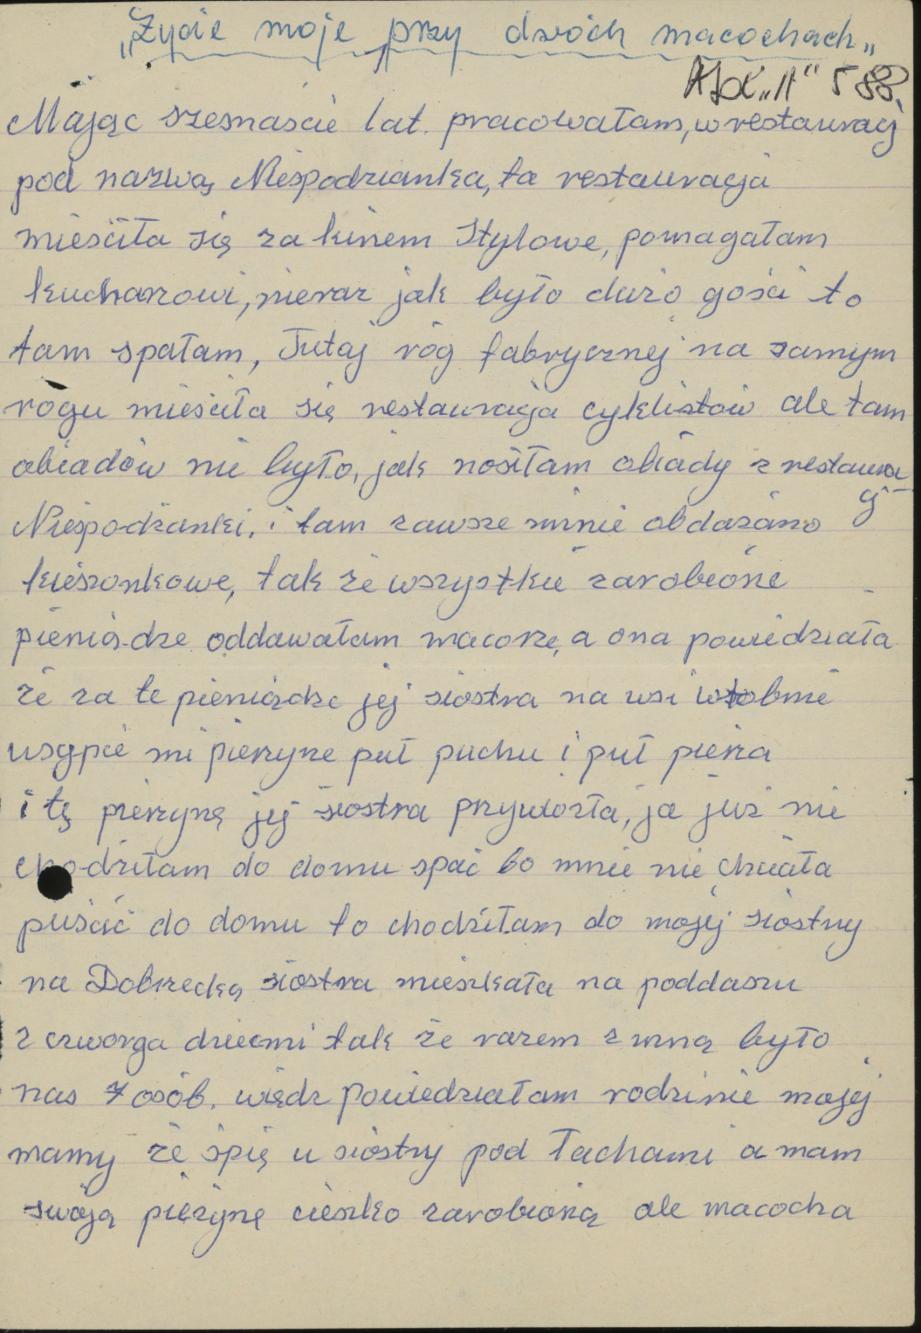 „Życie moje przy dwóch macochach„
"A" 588.
Mając szesnaście lat. pracowałam, w restauracj
pod nazwą Niespodzianka, ta restauracja
mieściła się za kinem Stylowe, pomagałam
kucharzowi, nieraz jak było dużo gości to
tam spałam, Tutaj róg fabrycznej na samym
rogu mieściła się restauracja cyklistów ale tam
obiadów nie było, jak nosiłam obiady z restaura
cj
Niespodzianki, i tam zawsze mnie obdażano
kieszonkowe, tak że wszystkie zarobione
pieniądze oddawałam macosze, a ona powiedziała
że za te pieniądze jej siostra na wsi
wsypie mi pierzyne puł puchu i puł pierza
i tę pierzynę jej siostra przywozła, ja już nie
chodziłam do domu spać bo mnie nie chciała
puścić do domu to chodziłam do mojej siostry
na Dobrzecką siostra mieszkała na poddaszu
z czworga dziecmi tak że razem z mną było
nas 7 osób. więdz powiedziałam rodzinie mojej
mamy że śpię u siostry pod łachami a mam
swoją pieżynę cieszko zarobioną ale macocha